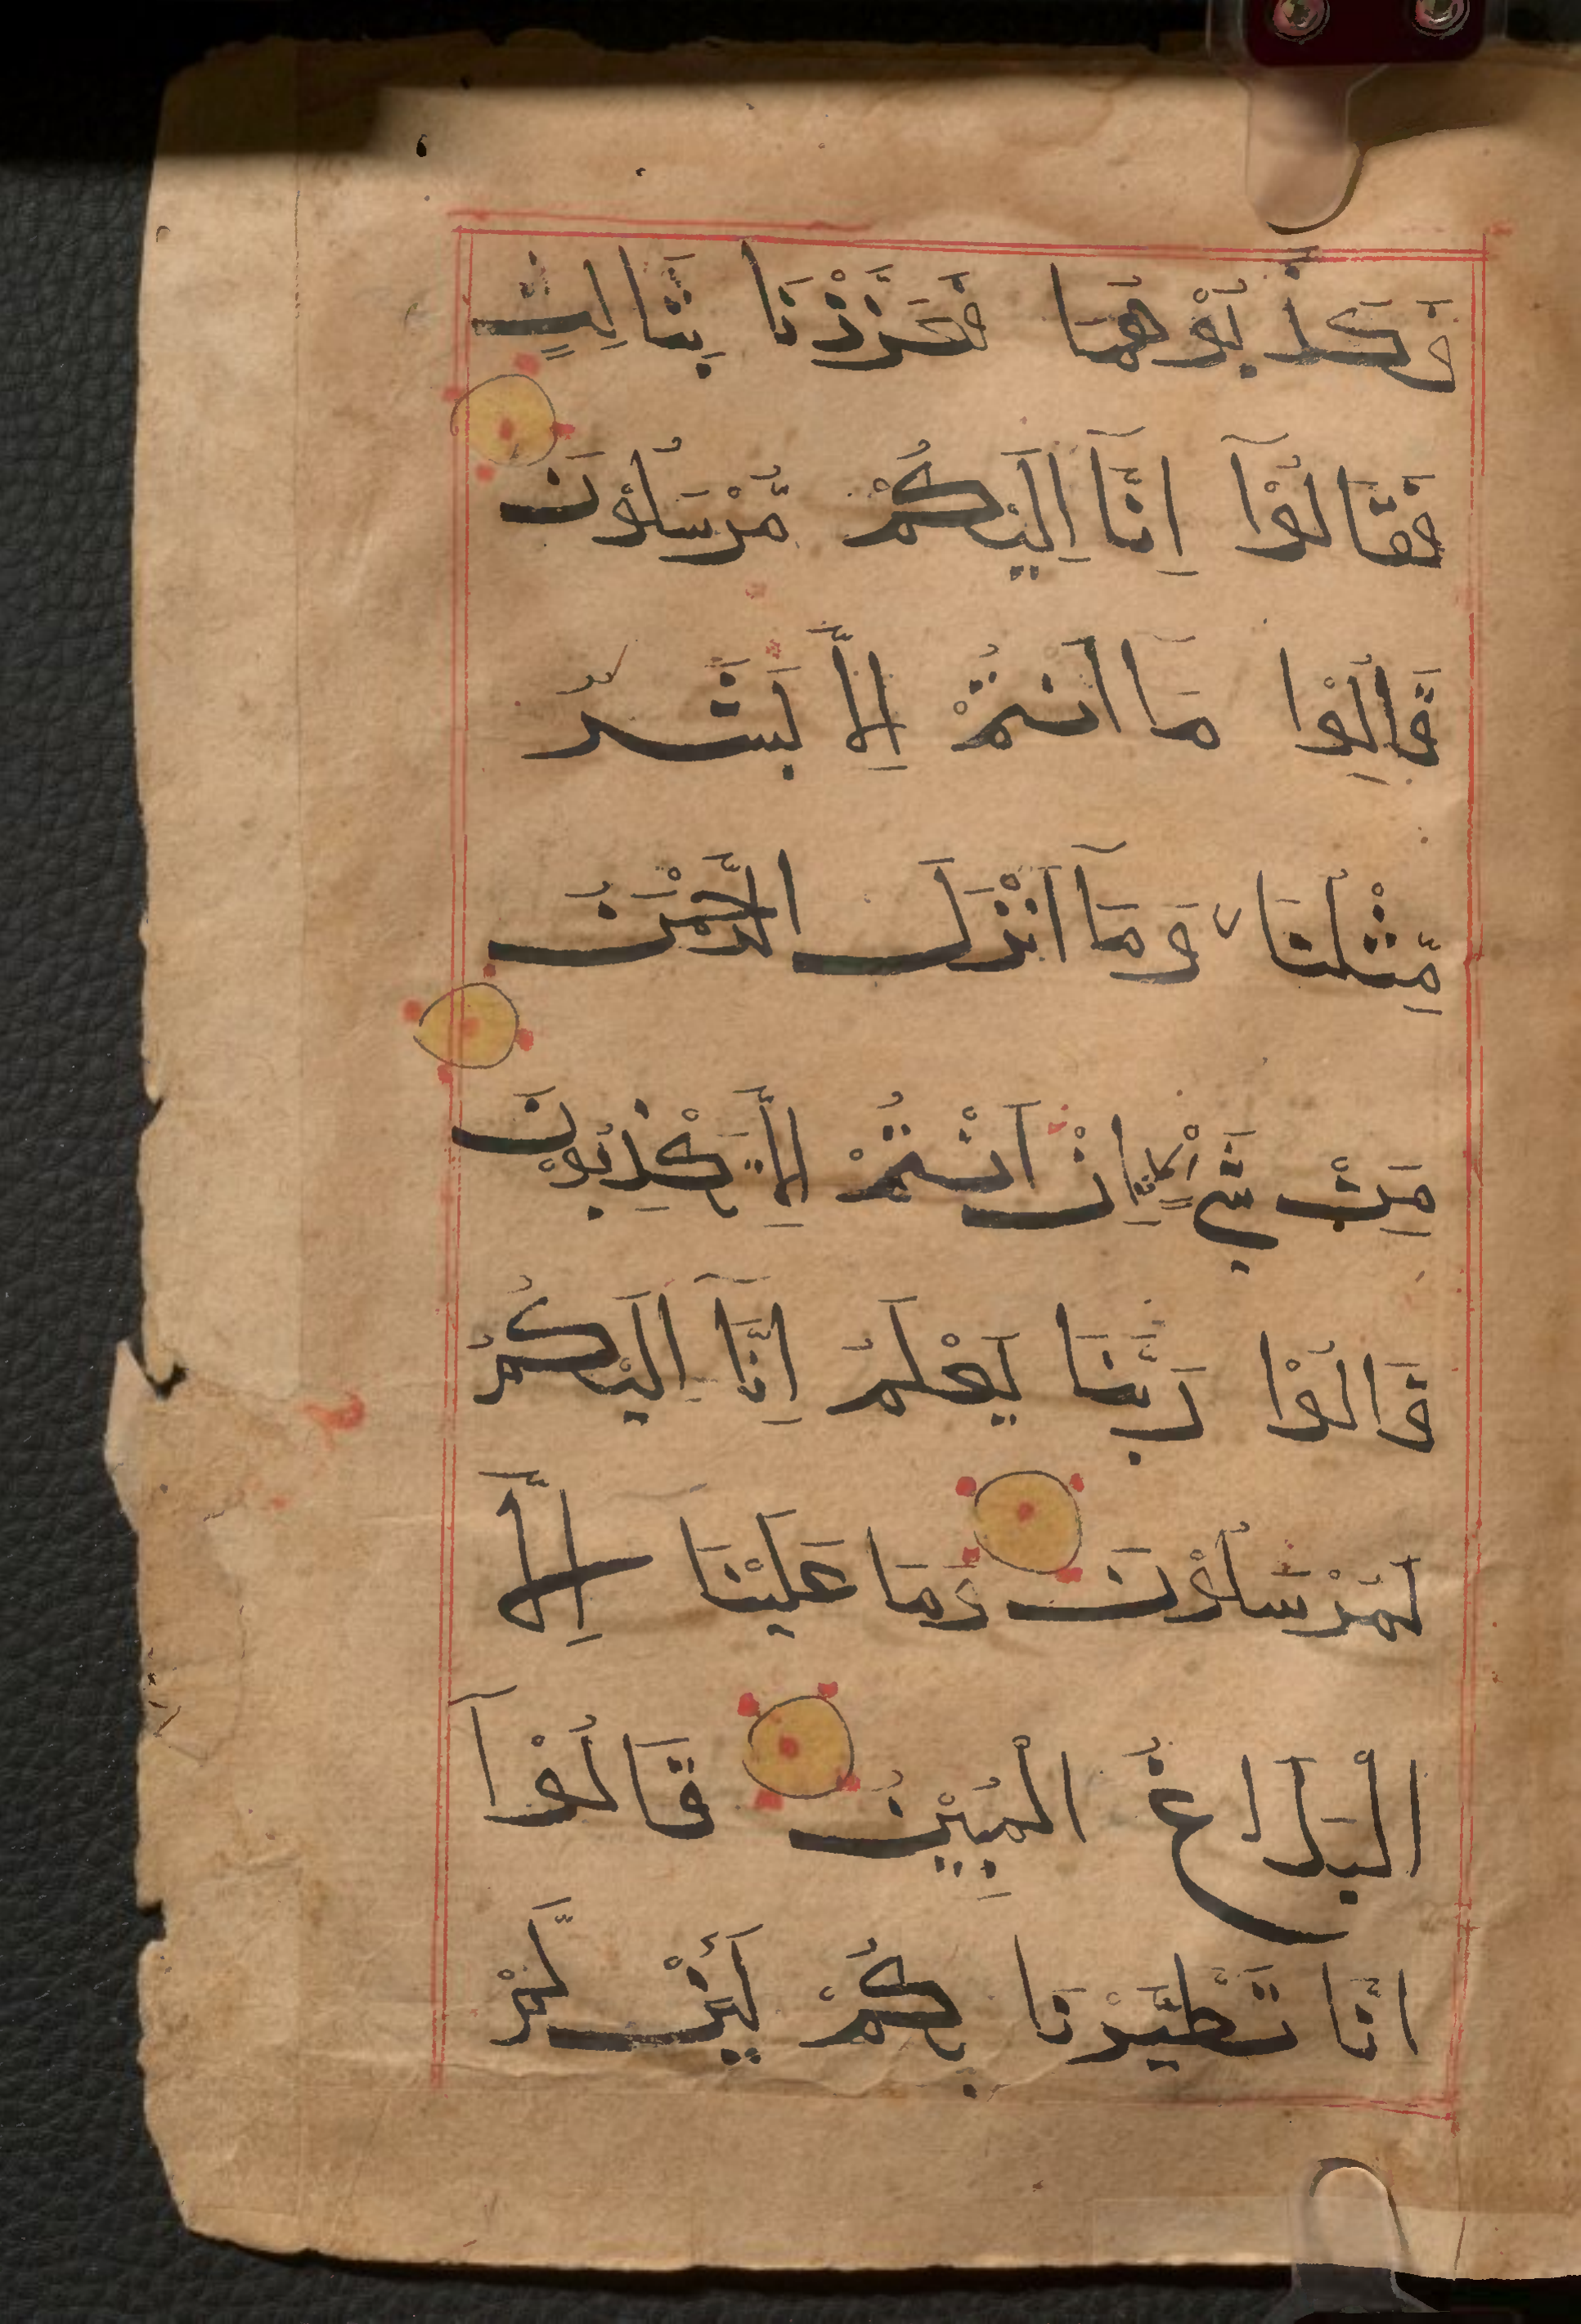 فَكَذَّبُوْهُمَا فَعَزَّزْنَا بِثَالِثٍ
فَقَالُوْآ اِنَّآ اِلَيْكُمْ مُّرْسَلُوْنَ
قَالُوْا مَا اَنْتُمْ اِلَّا بَشَرٌ
مِّثْلُنَا وَمَآ اَنْزَلَ الرَّحْمٰنُ
مِنْ شَيْ اِنْ اَنْتُمْ اِلَّا تَكْذِبُوْنَ
قَالُوْا رَبُّنَا يَعْلَمُ اِنَّآ اِلَيْكُمْ
لَمُرْسَلُوْنَ وَمَا عَلَيْنَا اِلَّا
الْبَلَاغُ الْمُبِيْنُ قَالُوْآ
اِنَّا تَطَيَّرْنَا بِكُمْ لَئِنْ لَّمْ